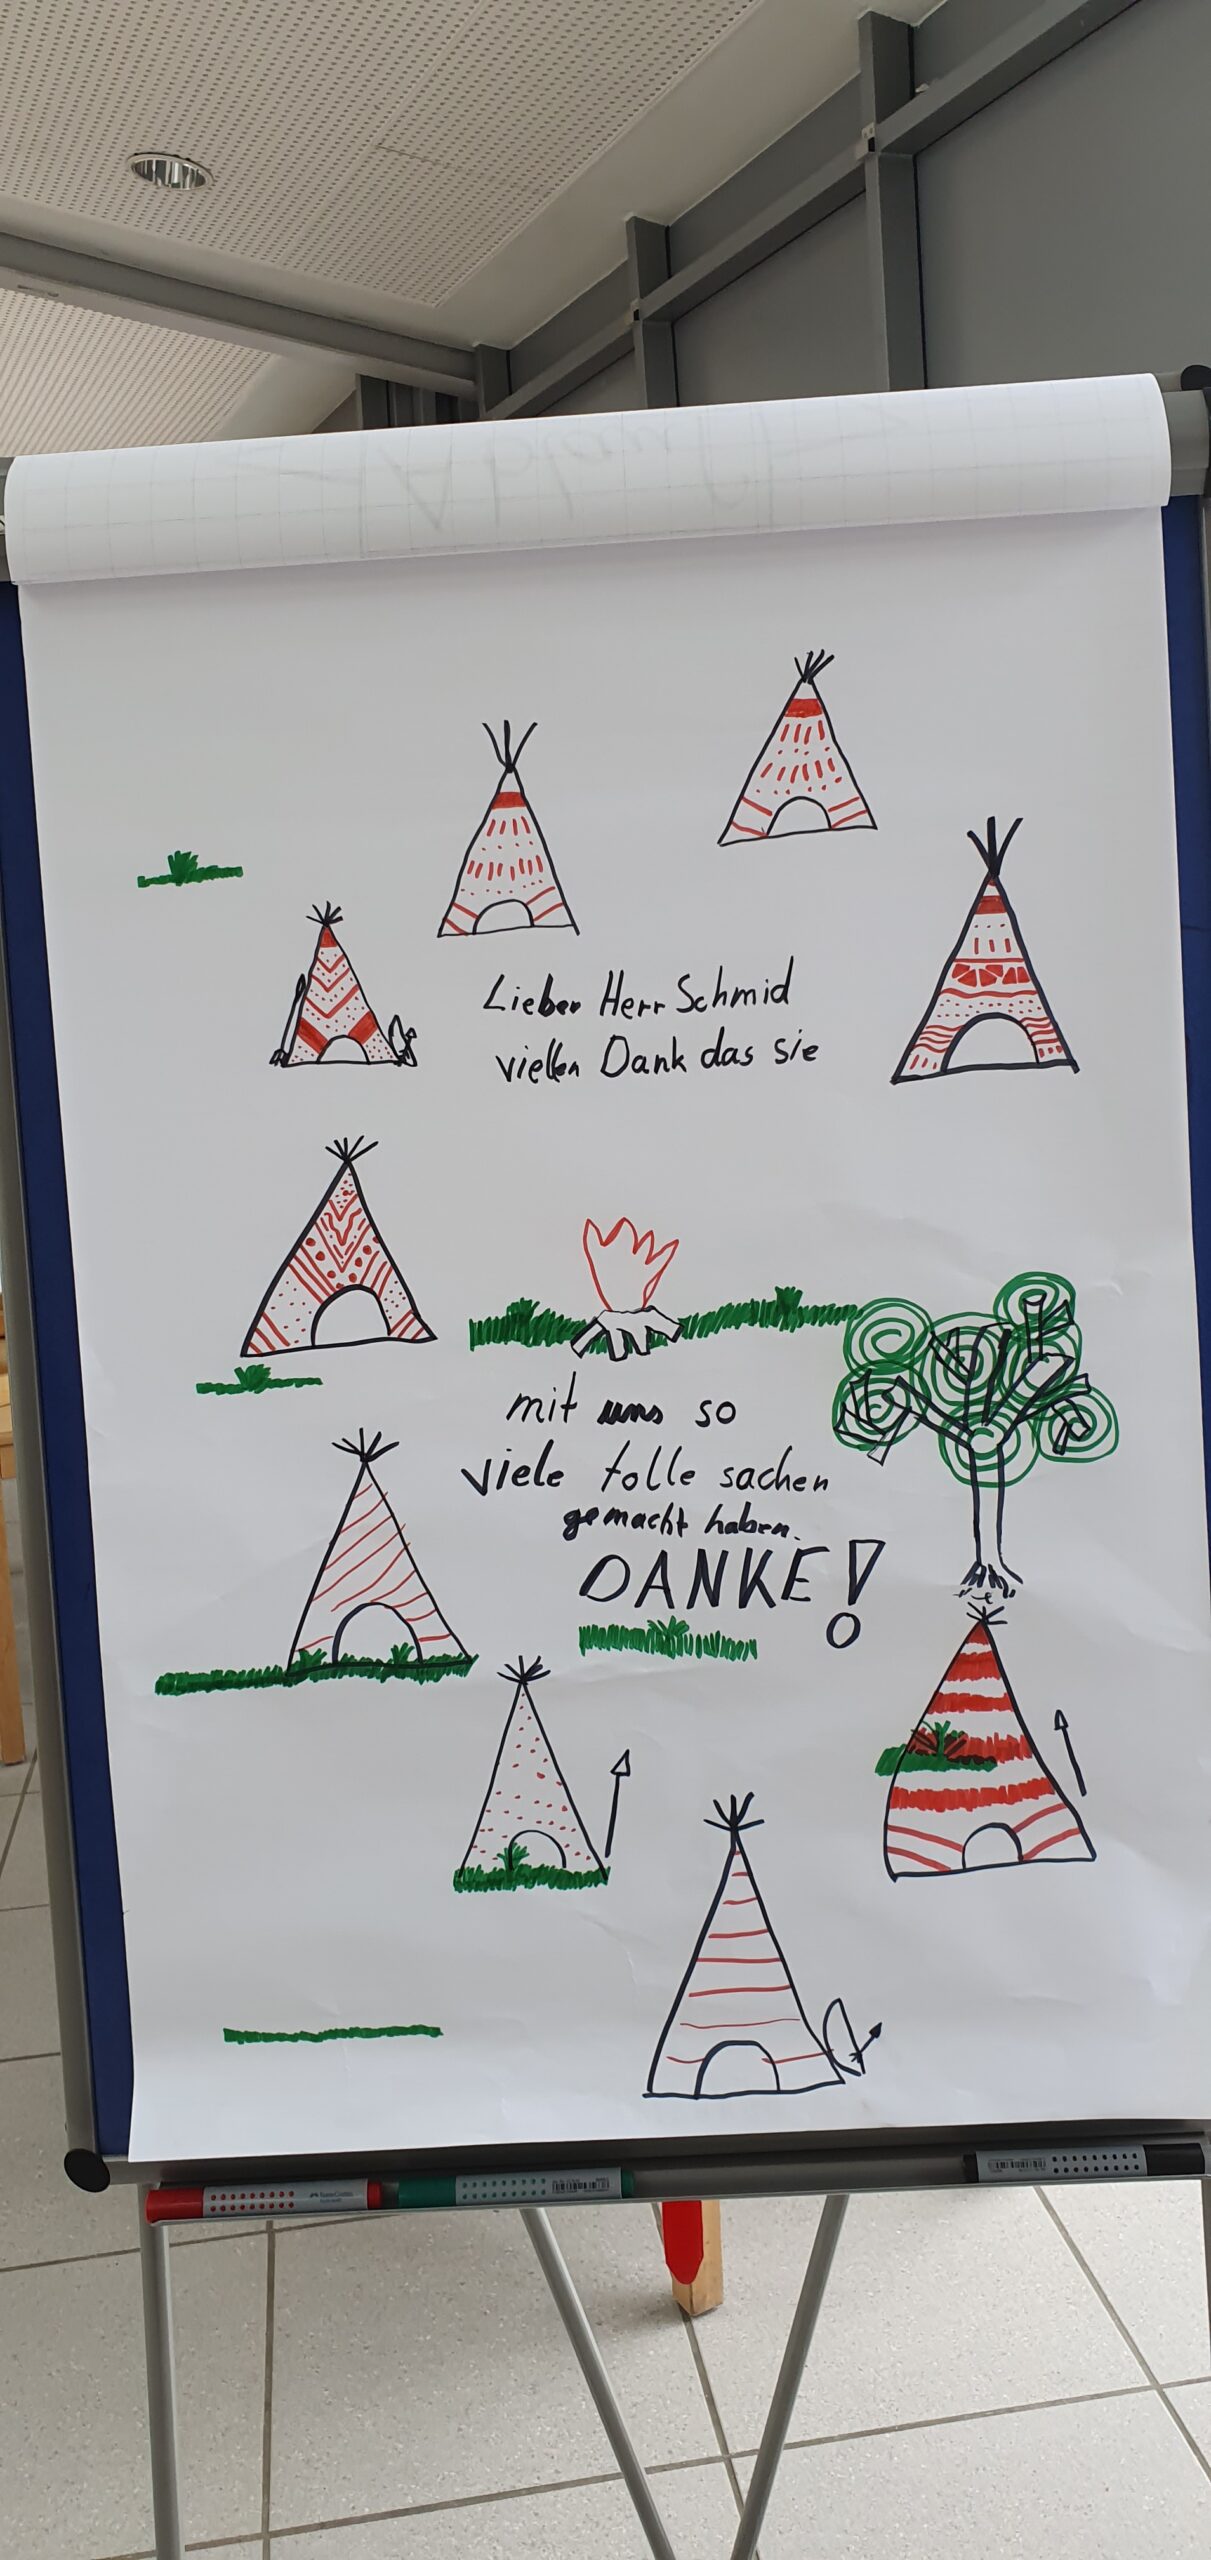 Ablauf
Lieber Herr Schmid
viellen Dank das sie
mit uns so
viele tolle sachen
gemacht haben.
DANKE!